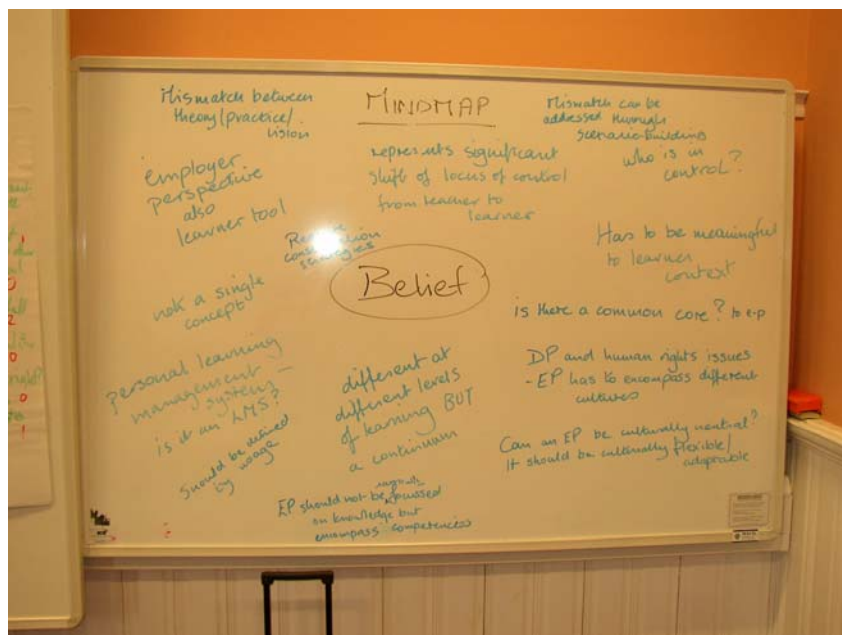 MINDMAP
Mismatch between
theory/practice/
vision
Mismatch can be
addressed through
scenario-building
who is in
control?
represents significant
shift of locus of control
from teacher to
learner
employer
perspective
also
learner tool
Has to be meaningful
to learner
context
Belief
not a single
concept
is there a common core? to e-p
personal learning
management
systems –
is it an LMS?
should be defined
by usage
different at
different levels
of learning BUT
a continuum
DP and human rights issues
- EP has to encompass different
cultures
Can an EP be culturally neutral?
It should be culturally flexible/
adaptable
EP should not be focussed
on knowledge but
encompass competences